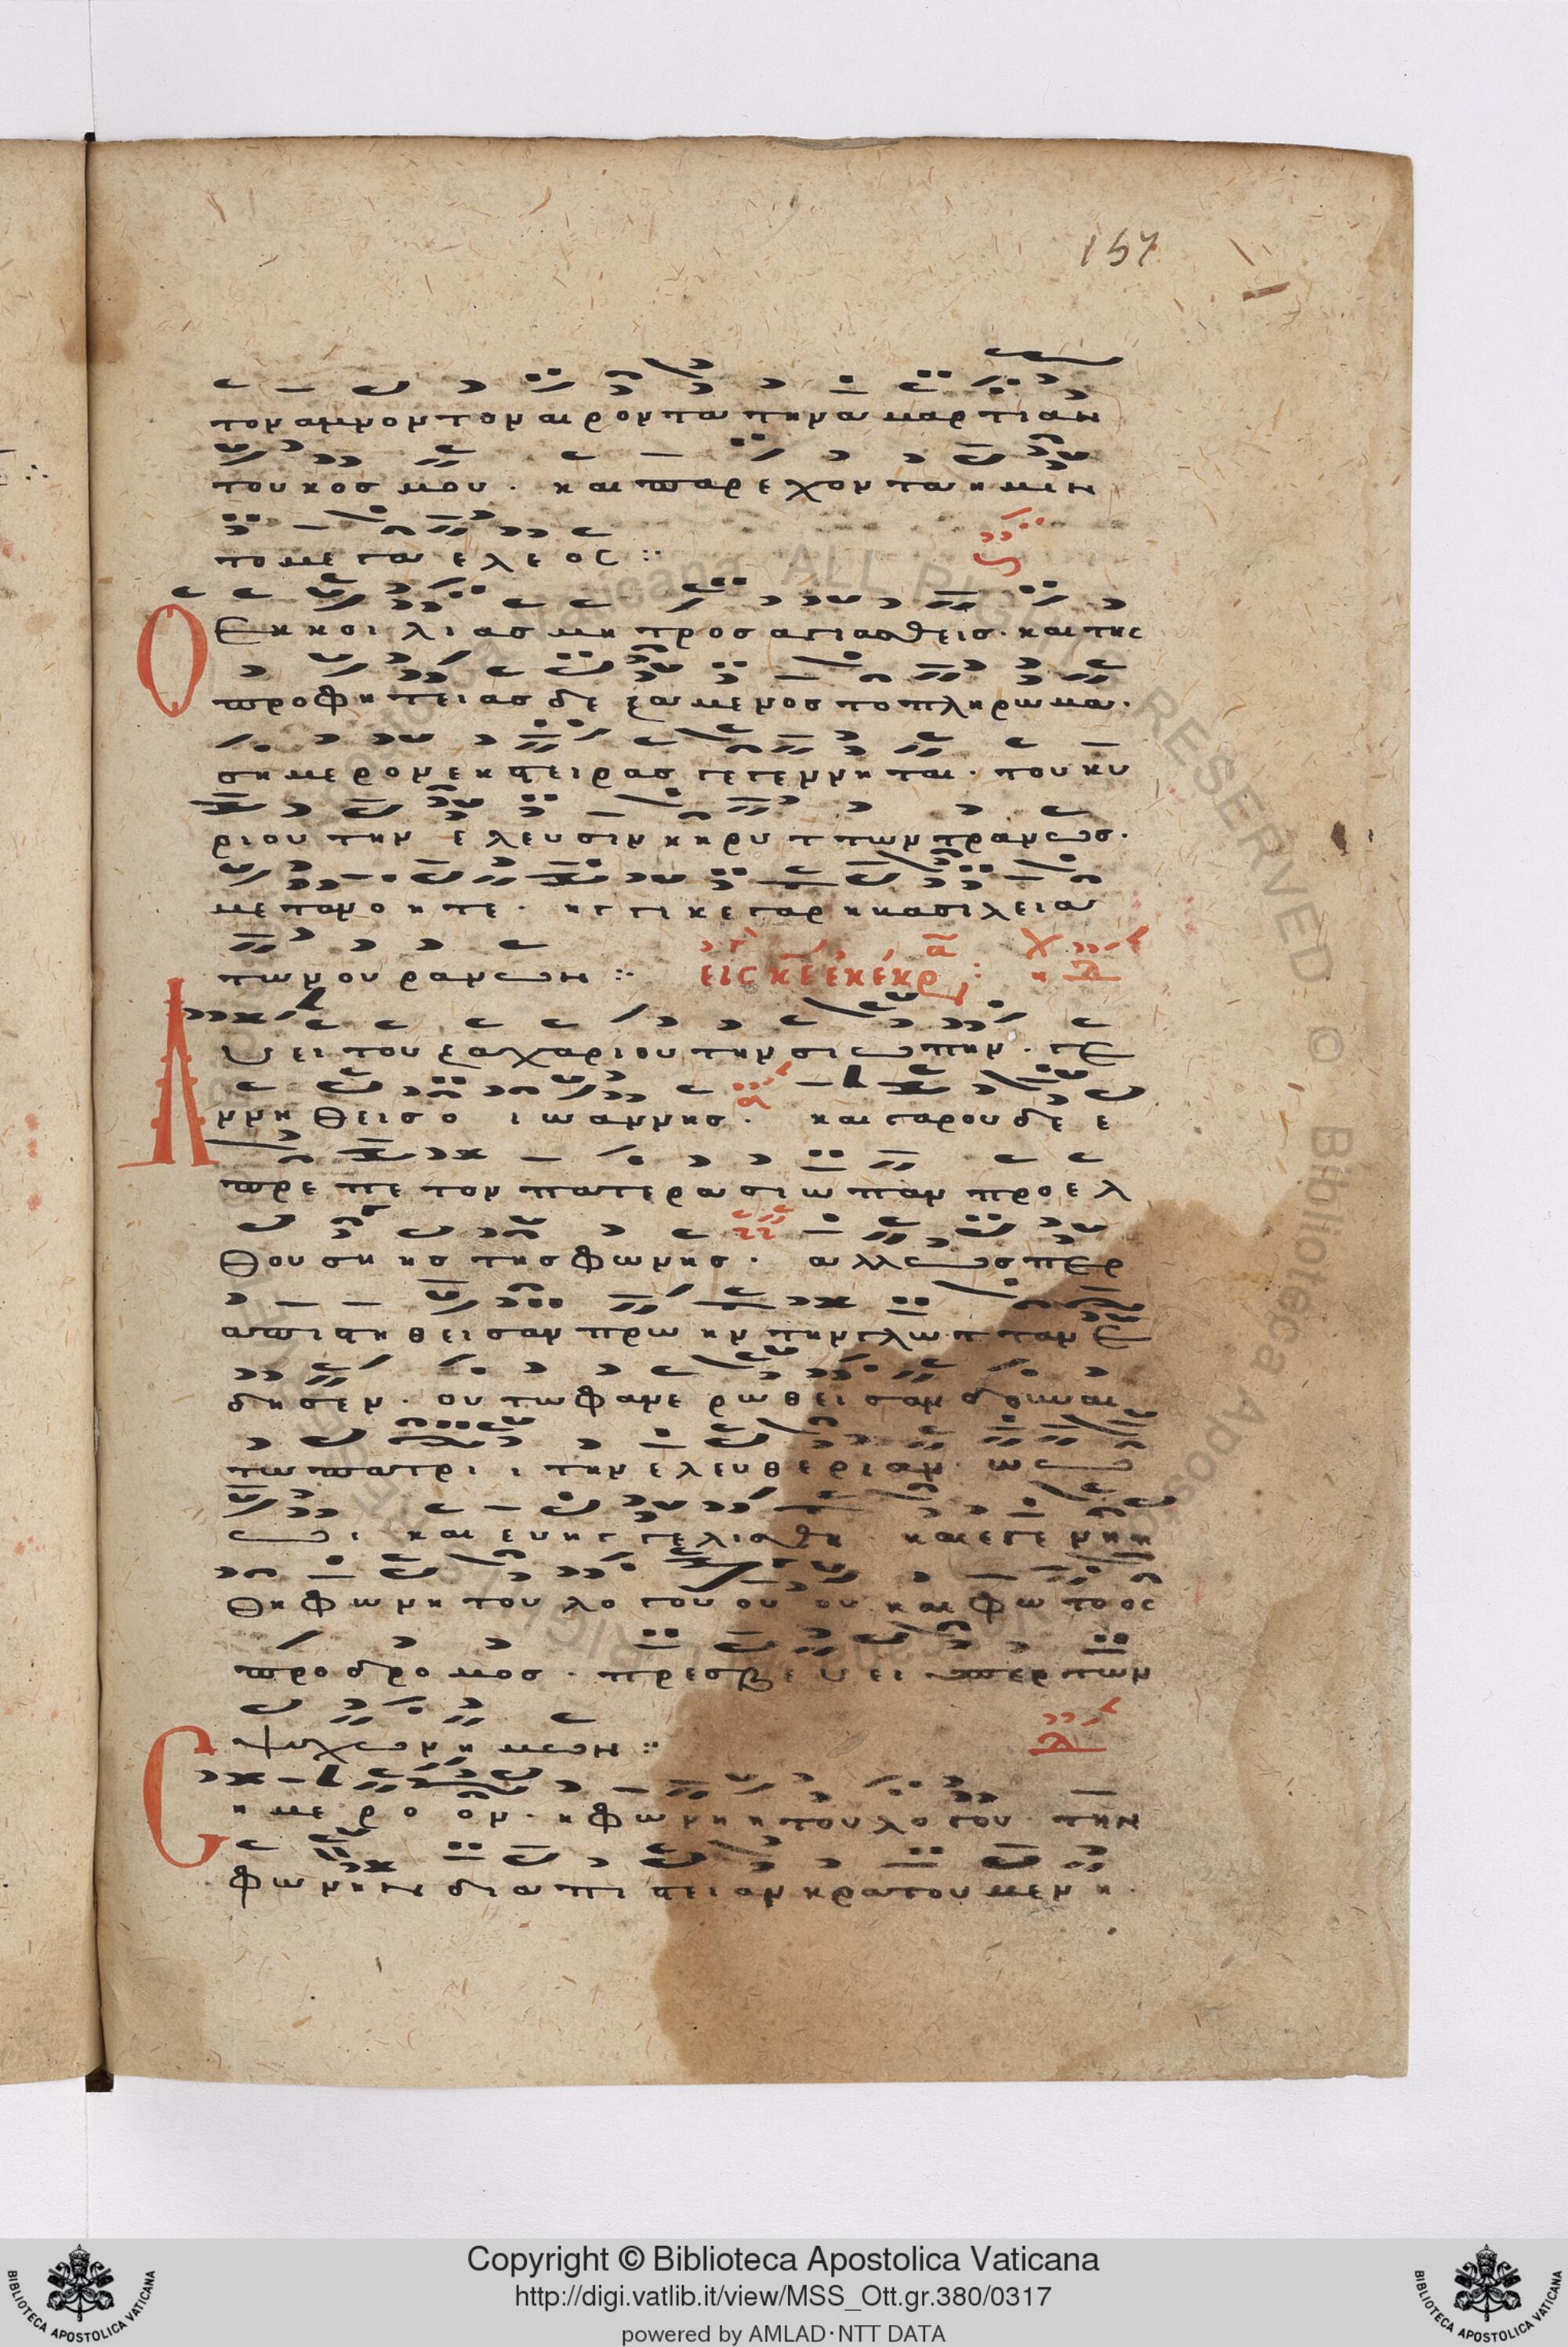 157
τον αμνον τον αιροντα την αμαρτιαν
του κοσμου · και παρεχοντα ημιν
το μεγα ελεος ::
Ο Εκ κοιλιας μη προσαγιασθεις · και της
προφητειας δεξαμενος το πληρωμα ·
σημερον εκ στειρας γεγεννηται · του κυ
ριου την ελευσιν κηρυττων τρανως ·
μετανοητε · ηγγικε γαρ η βασιλεια
των ουρανων :: εις κε εκεκρ :
Λυει του ζαχαριου την σιωπην · γε
ννηθεις ο ιωαννης · και γαρ ουδε ε
πρεπε τον πατερα σιωπαν προελ
θουσης της φωνης · αλλ ωσπερ
απιστηθεισαν πρωην την γλωτταν ε
δησεν · ουτω φανερωθεισαν δουναι
τω πατρι ι την ελευθεριαν · ω ω
ω ι και ευηγγελισθη · και εγεννη
θη φωνη του λογου ου ου και φωτοος
προδρομος · πρεσβευει υπερ των
ψυχων ημων ::
Σημερο ον · η φωνη η του λογου την
φωνην δι απιστειαν κρατουμενη ·
Copyright © Biblioteca Apostolica Vaticana
http://digi.vatlib.it/view/MSS_Ott.gr.380/0317
powered by AMLAD·NTT DATA
BIBLIOTECA APOSTOLICA VATICANA
BIBLIOTECA APOSTOLICA VATICANA